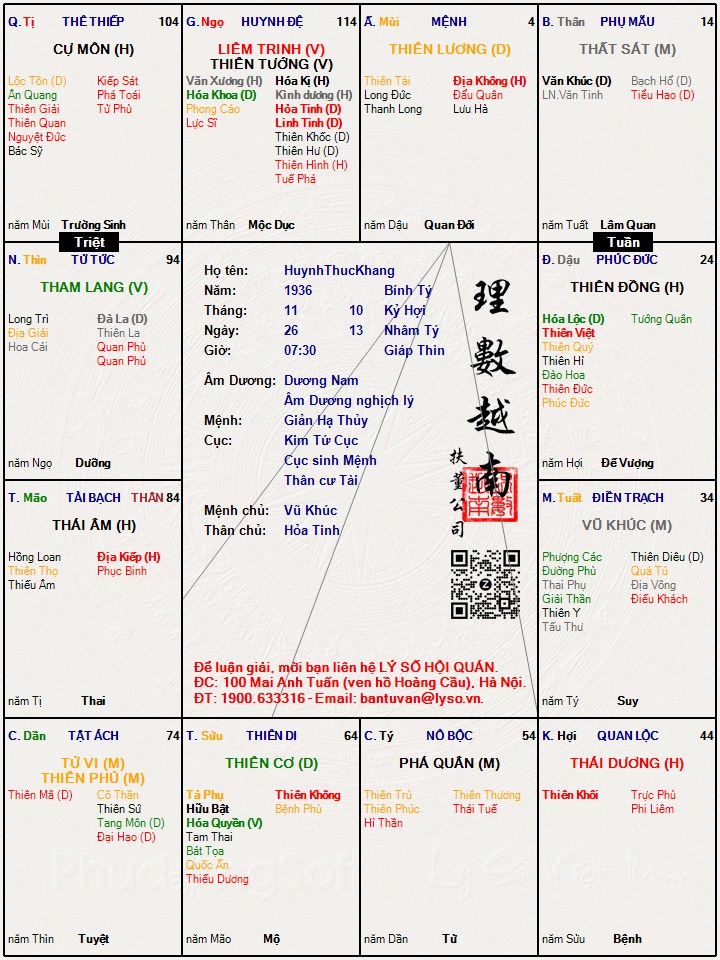 Q. Tị THÊ THIẾP 104
CỰ MÔN (H)
Lộc Tồn (D) Kiếp Sát
Ân Quang Phá Toái
Thiên Giải Tử Phù
Thiên Quan
Nguyệt Đức
Bác Sỹ
năm Mùi Trường Sinh
G. Ngọ HUYNH ĐỆ 114
LIÊM TRINH (V)
THIÊN TƯỚNG (V)
Văn Xương (H) Hóa Kị (H)
Hóa Khoa (D) Kình dương (H)
Phong Cáo Hỏa Tinh (D)
Lực Sĩ Linh Tinh (D)
Thiên Khốc (D)
Thiên Hư (D)
Thiên Hình (H)
Tuế Phá
năm Thân Mộc Dục
Ất. Mùi MỆNH 4
THIÊN LƯƠNG (D)
Thiên Tài Địa Không (H)
Long Đức Đẩu Quân
Thanh Long Lưu Hà
năm Dậu Quan Đới
B. Thân PHỤ MẪU 14
THẤT SÁT (M)
Văn Khúc (D) Bạch Hổ (D)
LN.Văn Tinh Tiểu Hao (D)
năm Tuất Lâm Quan
Triệt
Tuần
N. Thìn TỬ TỨC 94
THAM LANG (V)
Long Trì Đà La (D)
Địa Giải Thiên La
Hoa Cái Quan Phù
Quan Phủ
năm Ngọ Dưỡng
Họ tên: HuynhThucKhang
Năm: 1936 Bính Tý
Tháng: 11 10 Kỷ Hợi
Ngày: 26 13 Nhâm Tý
Giờ: 07:30 Giáp Thìn
Âm Dương: Dương Nam
Âm Dương nghịch lý
Mệnh: Giản Hạ Thủy
Cục: Kim Tứ Cục
Cục sinh Mệnh
Thân cư Tài
Mệnh chủ: Vũ Khúc
Thân chủ: Hỏa Tinh
理數越南
扶董公司
Để luận giải, mời bạn liên hệ LÝ SỐ HỘI QUÁN.
ĐC: 100 Mai Anh Tuấn (ven hồ Hoàng Cầu), Hà Nội.
ĐT: 1900.633316 - Email: bantuvan@lyso.vn.
Đ. Dậu PHÚC ĐỨC 24
THIÊN ĐỒNG (H)
Hóa Lộc (D) Tướng Quân
Thiên Việt
Thiên Quý
Thiên Hỉ
Đào Hoa
Thiên Đức
Phúc Đức
năm Hợi Đế Vượng
T. Mão TÀI BẠCH THÂN 84
THÁI ÂM (H)
Hồng Loan Địa Kiếp (H)
Thiên Thọ Phục Binh
Thiếu Âm
năm Tị Thai
M. Tuất ĐIỀN TRẠCH 34
VŨ KHÚC (M)
Phượng Các Thiên Diêu (D)
Đường Phù Quả Tú
Thai Phụ Địa Võng
Giải Thần Điếu Khách
Thiên Y
Tấu Thư
năm Tý Suy
C. Dần TẬT ÁCH 74
TỬ VI (M)
THIÊN PHỦ (M)
Thiên Mã (D) Cô Thần
Thiên Sứ
Tang Môn (D)
Đại Hao (D)
năm Thìn Tuyệt
T. Sửu THIÊN DI 64
THIÊN CƠ (D)
Tả Phụ Thiên Không
Hữu Bật Bệnh Phù
Hóa Quyền (V)
Tam Thai
Bát Tọa
Quốc Ấn
Thiếu Dương
năm Mão Mộ
C. Tý NÔ BỘC 54
PHÁ QUÂN (M)
Thiên Trù Thiên Thương
Thiên Phúc Thái Tuế
Hỉ Thần
năm Dần Tử
K. Hợi QUAN LỘC 44
THÁI DƯƠNG (H)
Thiên Khôi Trực Phù
Phi Liêm
năm Sửu Bệnh